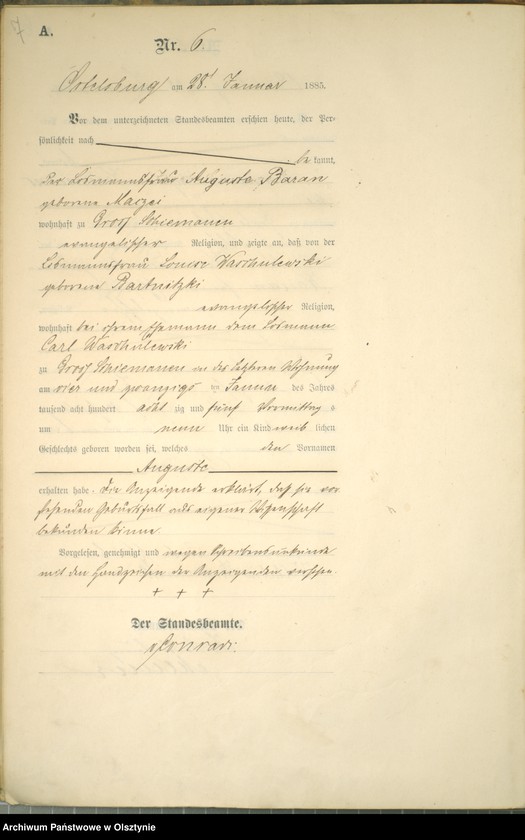 A.
Nr. 6.
am 28t Januar 1885.
Vor dem unterzeichneten Standesbeamten erschien heute, der Per-
sönlichkeit nach
be kannt,
Auguste Baran
geborene
wohnhaft zu Groß Schiemanen
evangelischer Religion, und zeigte an, daß von der
Losmannsfrau Louise Waschulewski
geborene
evangelischer Religion,
wohnhaft bei ihrem Ehemann dem Losmann
Carl Waschulewski
zu Groß Schiemanen in des letzteren Wohnung
am vier und zwanzigs ten Januar des Jahres
tausend acht hundert acht zig und fünf Vormittags
um neun Uhr ein Kind weib lichen
Geschlechts geboren worden sei, welches den Vornamen
Auguste
erhalten habe. Die Anzeigende erklärt, daß sie vor
stehenden Geburtsfall aus eigener Wissenschaft
bekunden könne.
Vorgelesen, genehmigt und wegen Schreibensunkunde
mit den Handzeichen der Anzeigenden versehen.
+ + +
Der Standesbeamte.
Conradi.
Archiwum Państwowe w Olsztynie